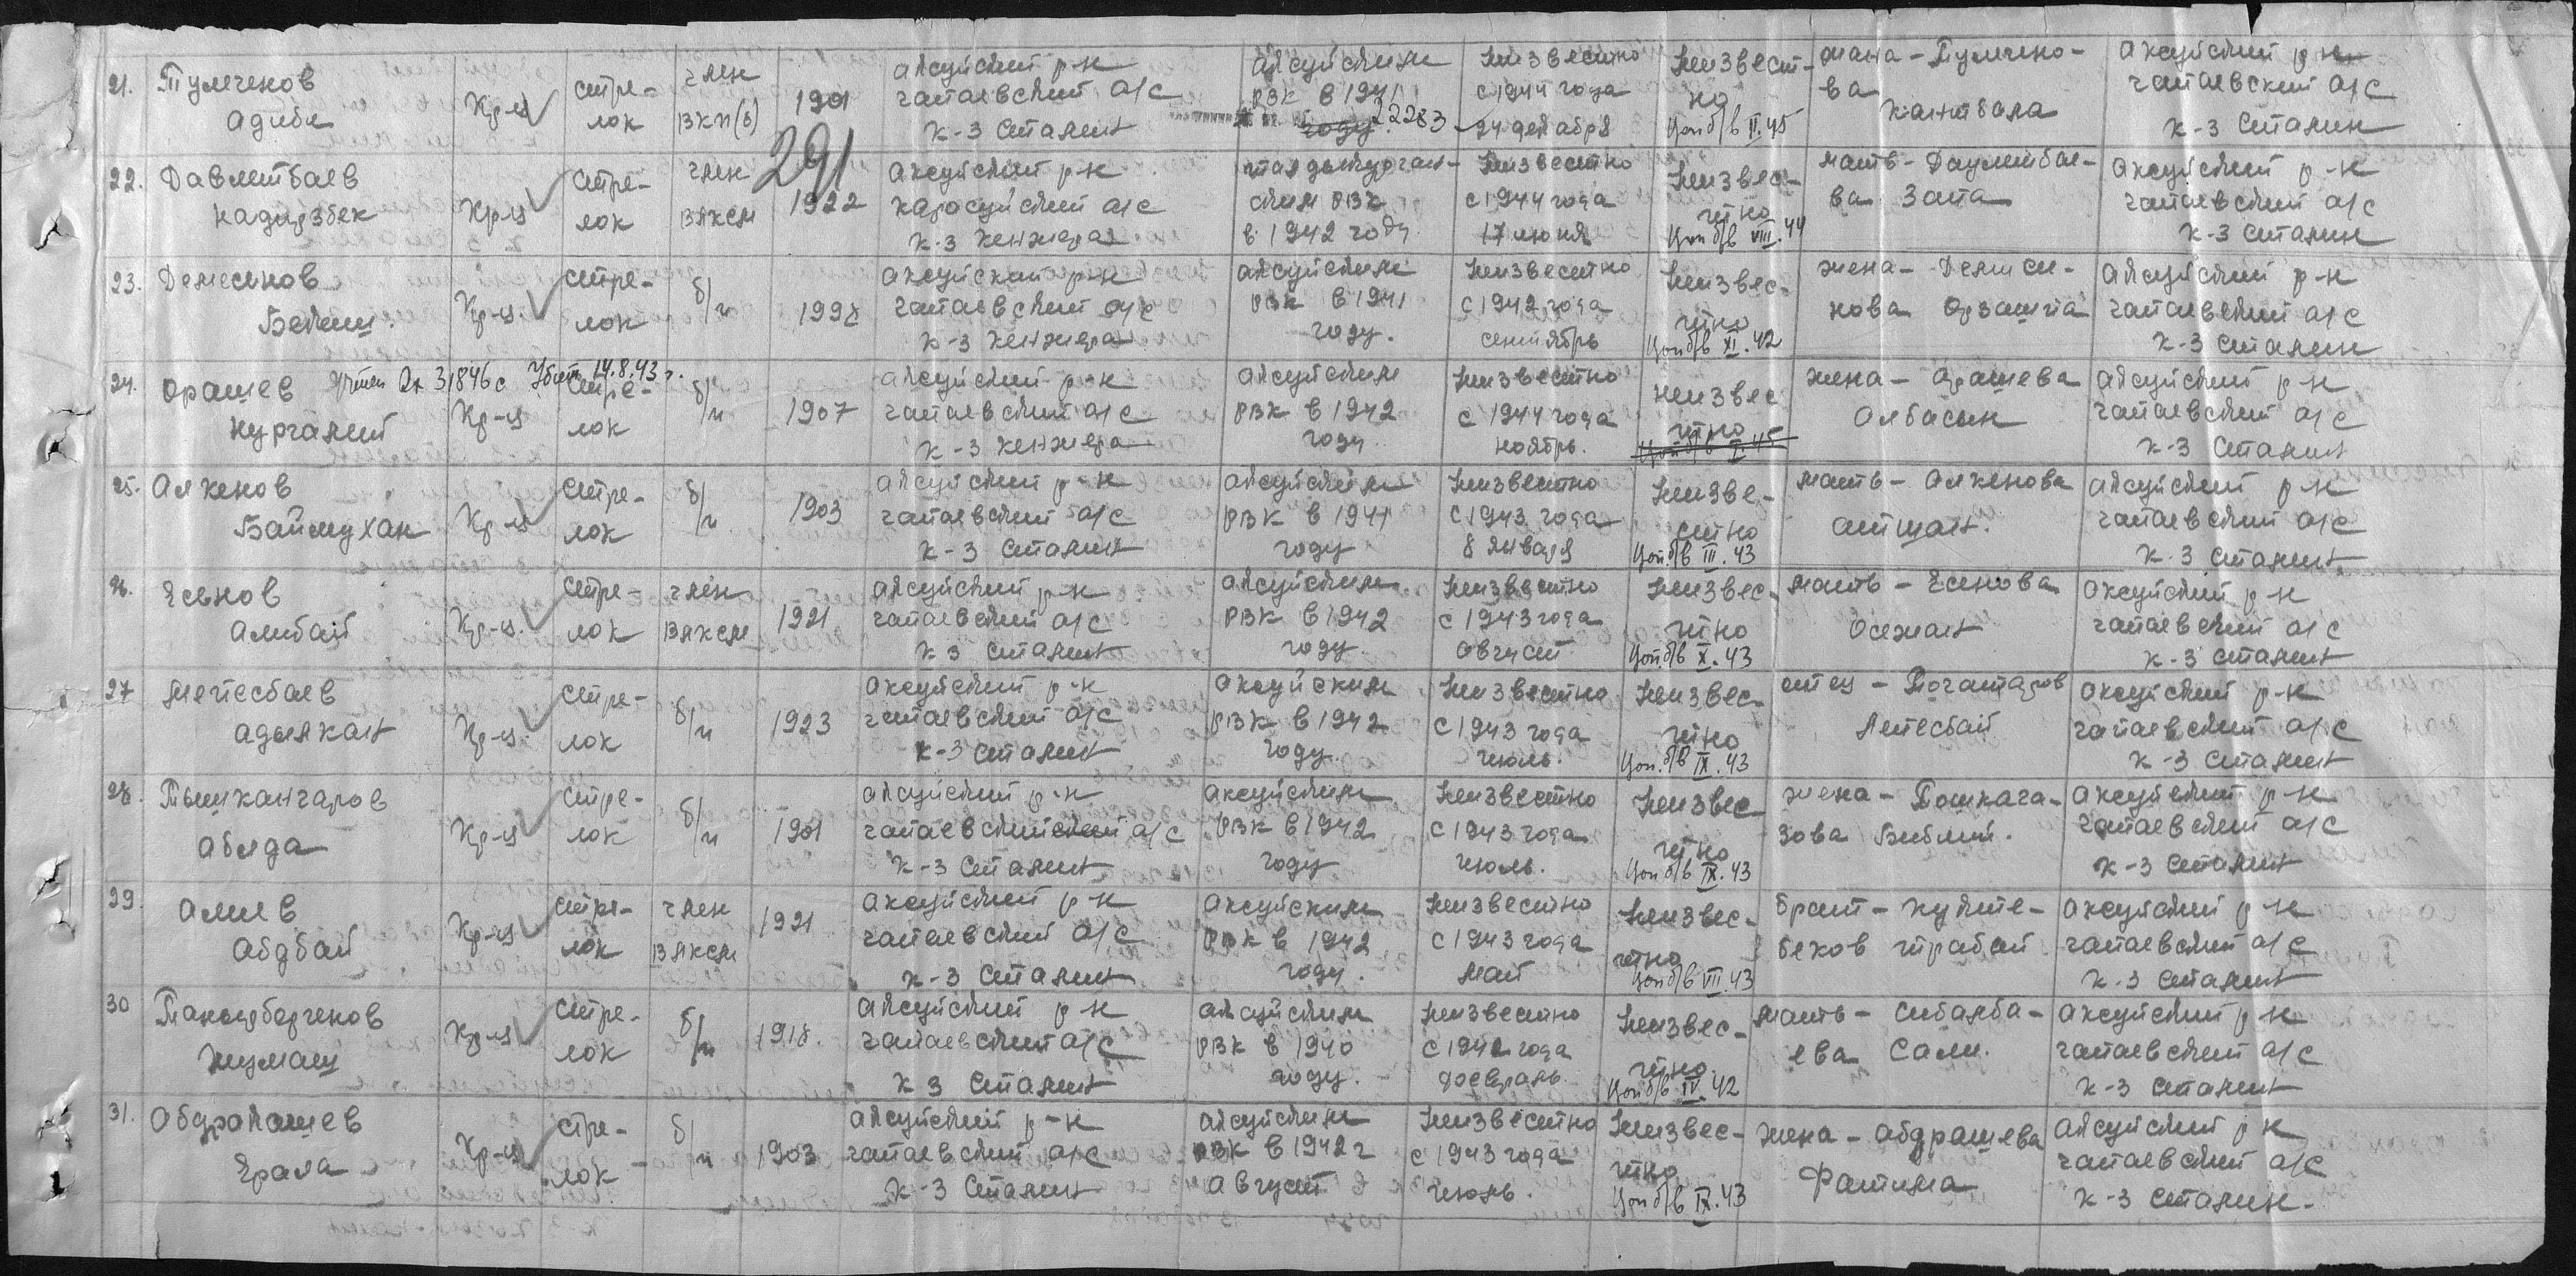 21. Тулегенов Адиби Кр-ц стре- лок член ВКП(б) 1901 Аксуйский р-н чапаевский а/с к-з Сталин Аксуйским РВК в 1941 году 22283 Неизвестно с 1944 года 24 декабря Неизвест- но Проп б/в II.45 жена - Тулегено- ва Канбала Аксуйский р-н чапаевский а/с к-з Сталин
291
22. Давлетбаев Надирзбек Кр-ц стре- лок член ВЛКСМ 1922 Аксуйский р-н карасуйский а/с к-з Кенжера Талдыкурган- ским РВК в 1942 году Неизвестно с 1944 года 17 июня Неизвес- тно Проп б/в VIII.44 мать - Даулетбае- ва Запа Аксуйский р-н чапаевский а/с к-з Сталин
23. Демесинов Бейсиш. Кр-ц. стре- лок б/п Аксуйский р-н чапаевский а/с к-з Кенжера Аксуйским РВК в 1941 году. Неизвестно с 1942 года сентябрь Неизвес- тно Проп б/в XI.42 жена - Демеси- нова Орзашта Аксуйский р-н чапаевский а/с к-з Сталин
24. Орашев Нургалий Учтен Вх 31846с Убит 14.8.43 г. Кр-ц стре- лок б/п 1907 Аксуйский р-н чапаевский а/с к-з Кенжера Аксуйским РВК в 1942 году Неизвестно с 1944 года ноябрь. неизвес тно Проп б/в I.45 жена - Орашева Албасын Аксуйский р-н чапаевский а/с к-з Сталин
25. Алкенов Баймухан Кр-ц стре- лок б/п 1903 Аксуйский р-н чапаевский а/с к-з Сталин Аксуйским РВК в 1941 году Неизвестно с 1943 года 8 января Неизве- стно Проп. б/в III.43 мать - Алкенова Аитжан. Аксуйский р-н чапаевский а/с к-з Сталин
26. Есенов Алибай Кр-ц. стре- лок член ВЛКСМ 1921 Аксуйский р-н чапаевский а/с к-з Сталин Аксуйским РВК в 1942 году Неизвестно с 1943 года август Неизвес- тно Проп. б/в X.43 мать - Есенова Осежан Аксуйский р-н чапаевский а/с к-з Сталин
27 Лепесбаев Адылкан Кр-ц. стре- лок б/п 1923 Аксуйский р-н чапаевский а/с к-з Сталин Аксуйским РВК в 1942 году. Неизвестно с 1943 года июль. Неизвес- тно Проп. б/в IX.43 отец - Лепесбай Аксуйский р-н чапаевский а/с к-з Сталин
28. Тышкангаров Абилда Кр-ц стре- лок б/п 1901 Аксуйский р-н чапаевский а/с к-з Сталин Аксуйским РВК в 1942 году Неизвестно с 1943 года июль. Неизвес тно Проп б/в IX.43 жена - Тошкага- зова Бибиш. Аксуйский р-н чапаевский а/с к-з Сталин
29. Алиев Абдбай Кр-ц стре- лок член ВЛКСМ 1921 Аксуйский р-н чапаевский а/с к-з Сталин Аксуйским РВК в 1942 году. Неизвестно с 1943 года май Неизвес- тно Проп б/в VII.43 брат - Аксуйский р-н чапаевский а/с к-з Сталин
30 Танирбергенов Жумаш Кр-ц стре- лок б/п 1918. Аксуйский р-н чапаевский а/с к-з Сталин Аксуйским РВК в 1940 году. Неизвестно с 1942 года февраль Неизвес- тно Проп б/в IV.42 мать - Сибалба- ева Сали. Аксуйский р-н чапаевский а/с к-з Сталин
31. Абдракашев Ерала Кр-ц стре- лок б/п 1903 Аксуйский р-н чапаевский а/с к-з Сталин Аксуйским РВК в 1942 г Август Неизвестно с 1943 года июнь. Неизвес- тно Проп б/в IX.43 жена - Абдрашева Фатима Аксуйский р-н чапаевский а/с к-з Сталин.